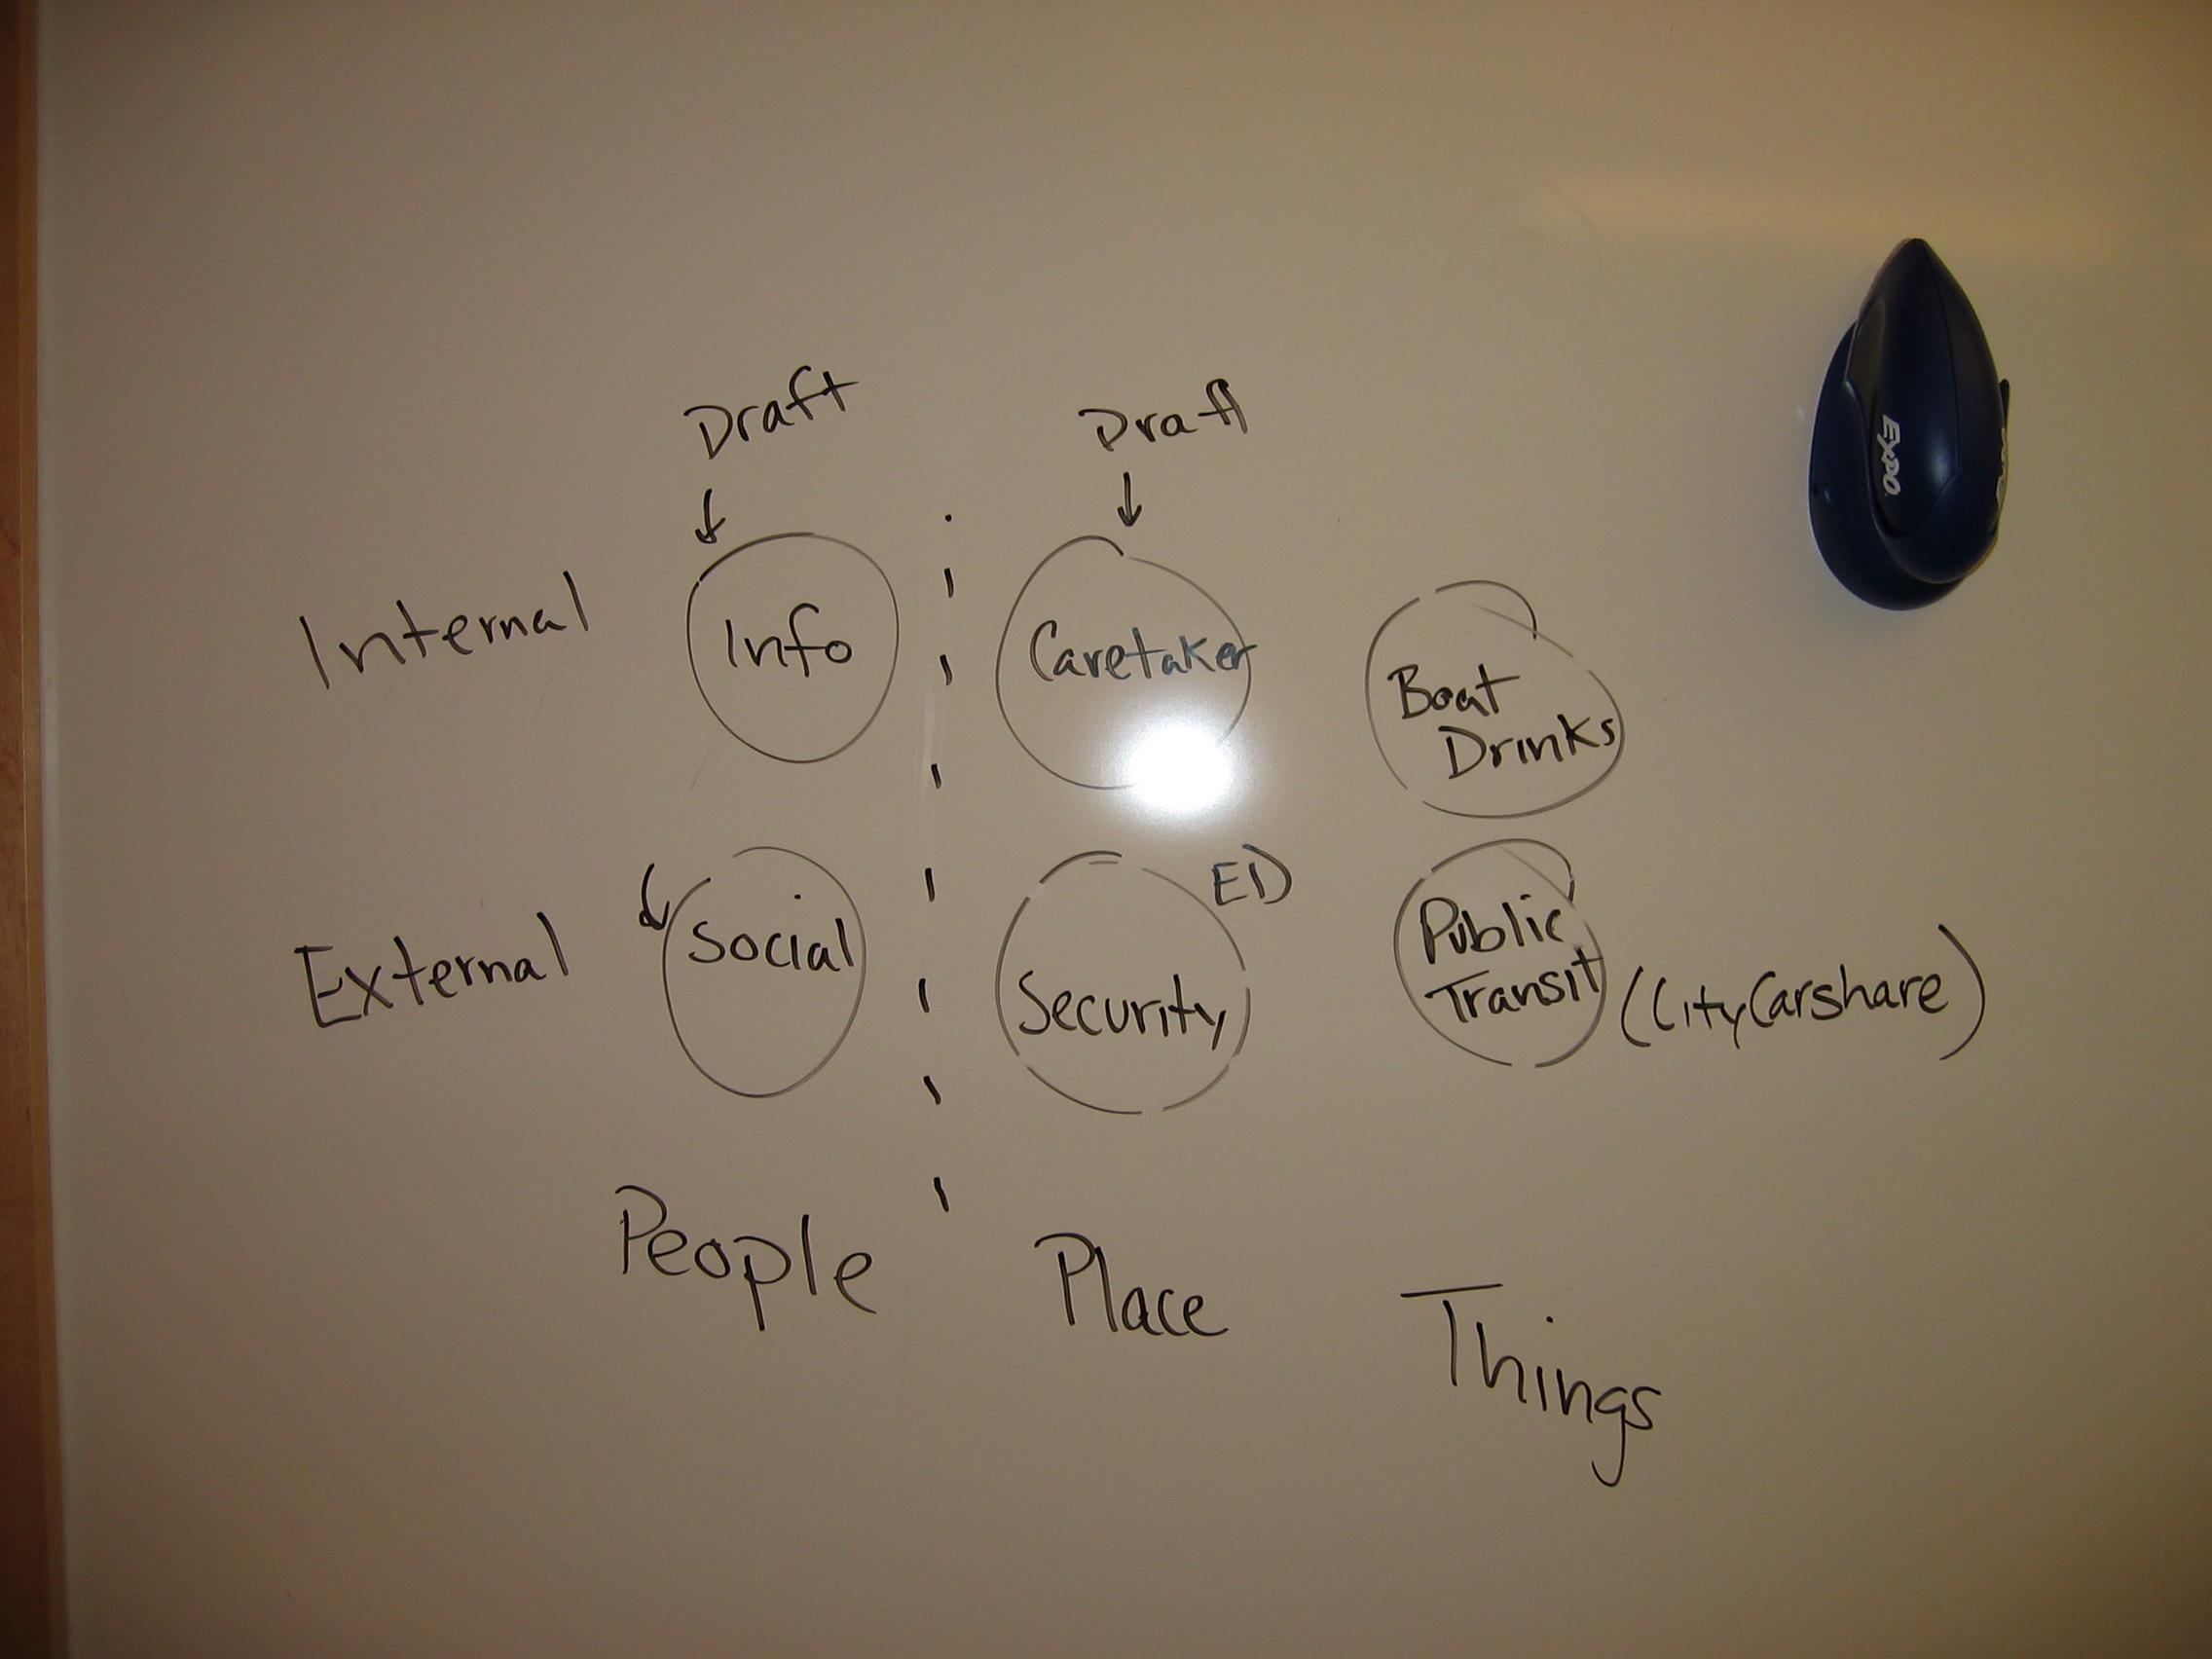 Draft Draft
Internal Info Caretaker Boat
Drinks
ED
External Social Security Public
Transit (CityCarshare)
People Place Things
EXPO